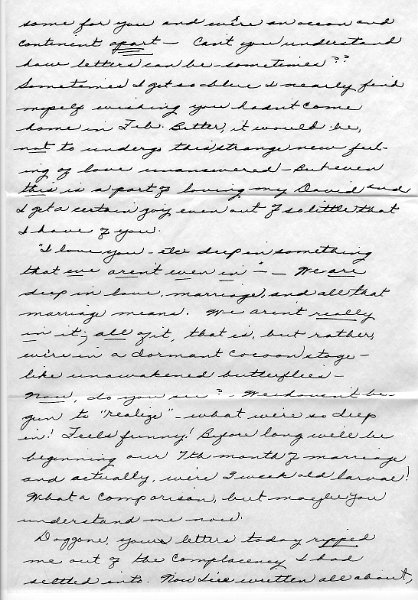 same for you and we're an ocean and
continent apart - Can't you understand
how letters can be - sometimes??
Sometimes I get so blue I nearly find
myself wishing you hadn't come
home in Feb. Better, it would be,
not to undergo this strange new feel-
ing of love unanswered - But even
this is a part of loving my David and
I get a certain joy even out of so little that
I have of you.
"I love you - etc deep in something
that we aren't even in" - We are
deep in love, marriage, and all that
marriage means. We aren't really
in it; all of it, that is, but rather,
we're in a dormant cocoon stage -
like unawakened butterflies -
Now, do you see? - We haven't be-
gun to "realize" - what we're so deep
in! Feels funny! Before long we'll be
beginning our 7th month of marriage
and actually, we're 3 week old larvae!
What a comparison, but maybe you
understand me now.
Doggone, your letters today ripped
me out of the complacency I had
settled into. Now I've written all about,